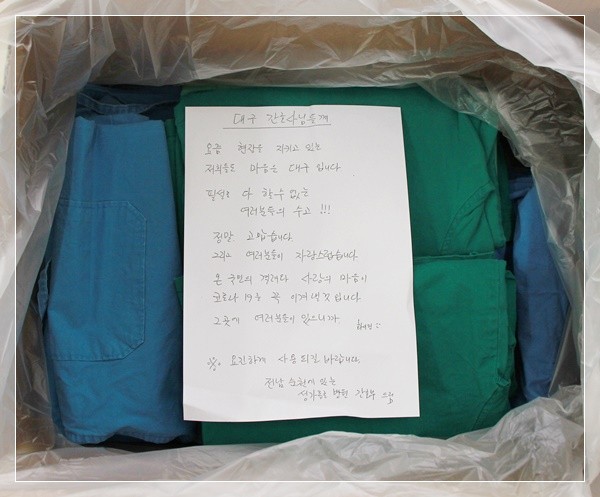 대구 간호사님들께
요즘 현장을 지키고 있는
저희들도 마음은 대구 입니다.
필설로 다 할수 없는
여러분들의 수고 !!!
정말 고맙습니다.
그리고 여러분들이 자랑스럽습니다.
온 국민의 격려와 사랑의 마음이
코로나 19를 꼭 이겨낼것 입니다.
그곳에 여러분들이 있으니까
요긴하게 사용 되길 바랍니다.
전남 순천에 있는
성가롤로 병원 간호부 드림